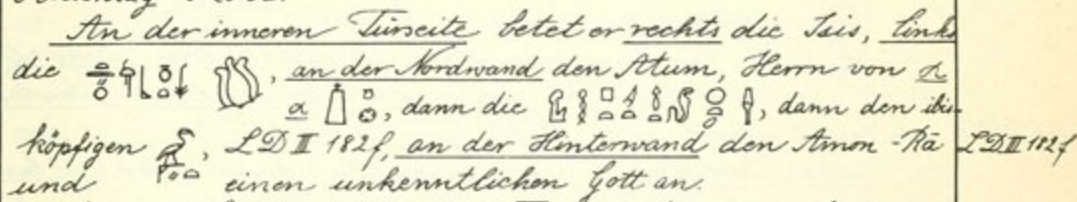 An der inneren Türseite betet er rechts die Isis, links
die , an der Nordwand den Atum, Herrn von
, dann die , dann den ibis-
köpfigen , LD III 182f, an der Hinterwand den Amon-Rā LD III 182f
und einen unkenntlichen Gott an.